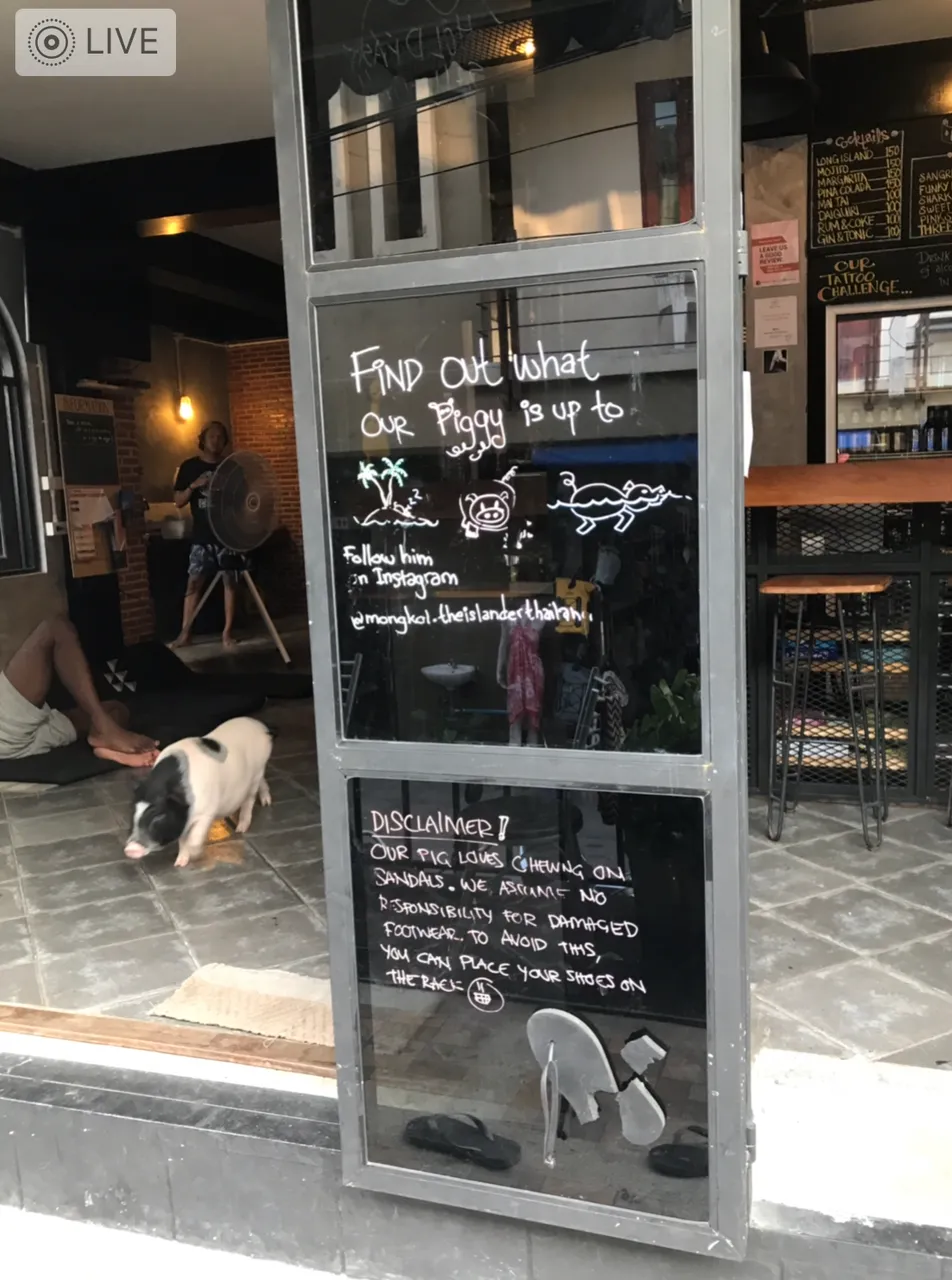 LIVE
Cocktails
LONG ISLAND 150
MOJITO 150
MARGARITA 150
PINA COLADA 150
MAI TAI
DAIQUIRI 100
RUM & COKE 100
GIN & TONIC 100
LEAVE US
A GOOD
REVIEW
OUR
TATTOO
CHALLENGE...
FIND OUT what
OUR Piggy is up to
zzz
Follow him
on Instagram
@mongkol.theislanderthailand
DISCLAIMER!
OUR PIG LOVES CHEWING ON
SANDALS. WE ASSUME NO
RESPONSIBILITY FOR DAMAGED
FOOTWEAR. TO AVOID THIS,
YOU CAN PLACE YOUR SHOES ON
THE RACK